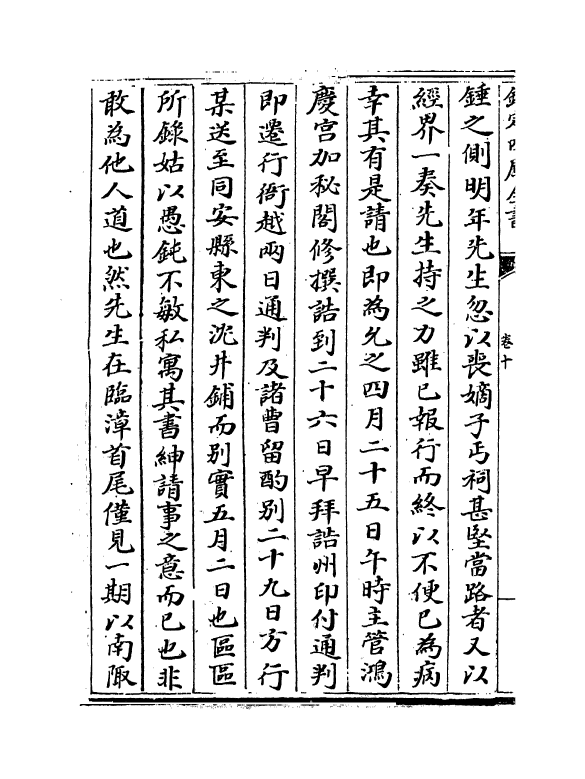 欽定四庫全書
卷十
錘之側明年先生忽以喪嫡子丐祠甚堅當路者又以
經界一奏先生持之力雖已報行而終以不便已為病
幸其有是請也即為允之四月二十五日午時主管鴻
慶宫加秘閣修撰誥到二十六日早拜誥州印付通判
即遷行衙越兩日通判及諸曹留酌别二十九日方行
某送至同安縣東之沈井鋪而别實五月二日也區區
所錄姑以愚鈍不敏私寓其書紳請事之意而已也非
敢為他人道也然先生在臨漳首尾僅見一期以南陬